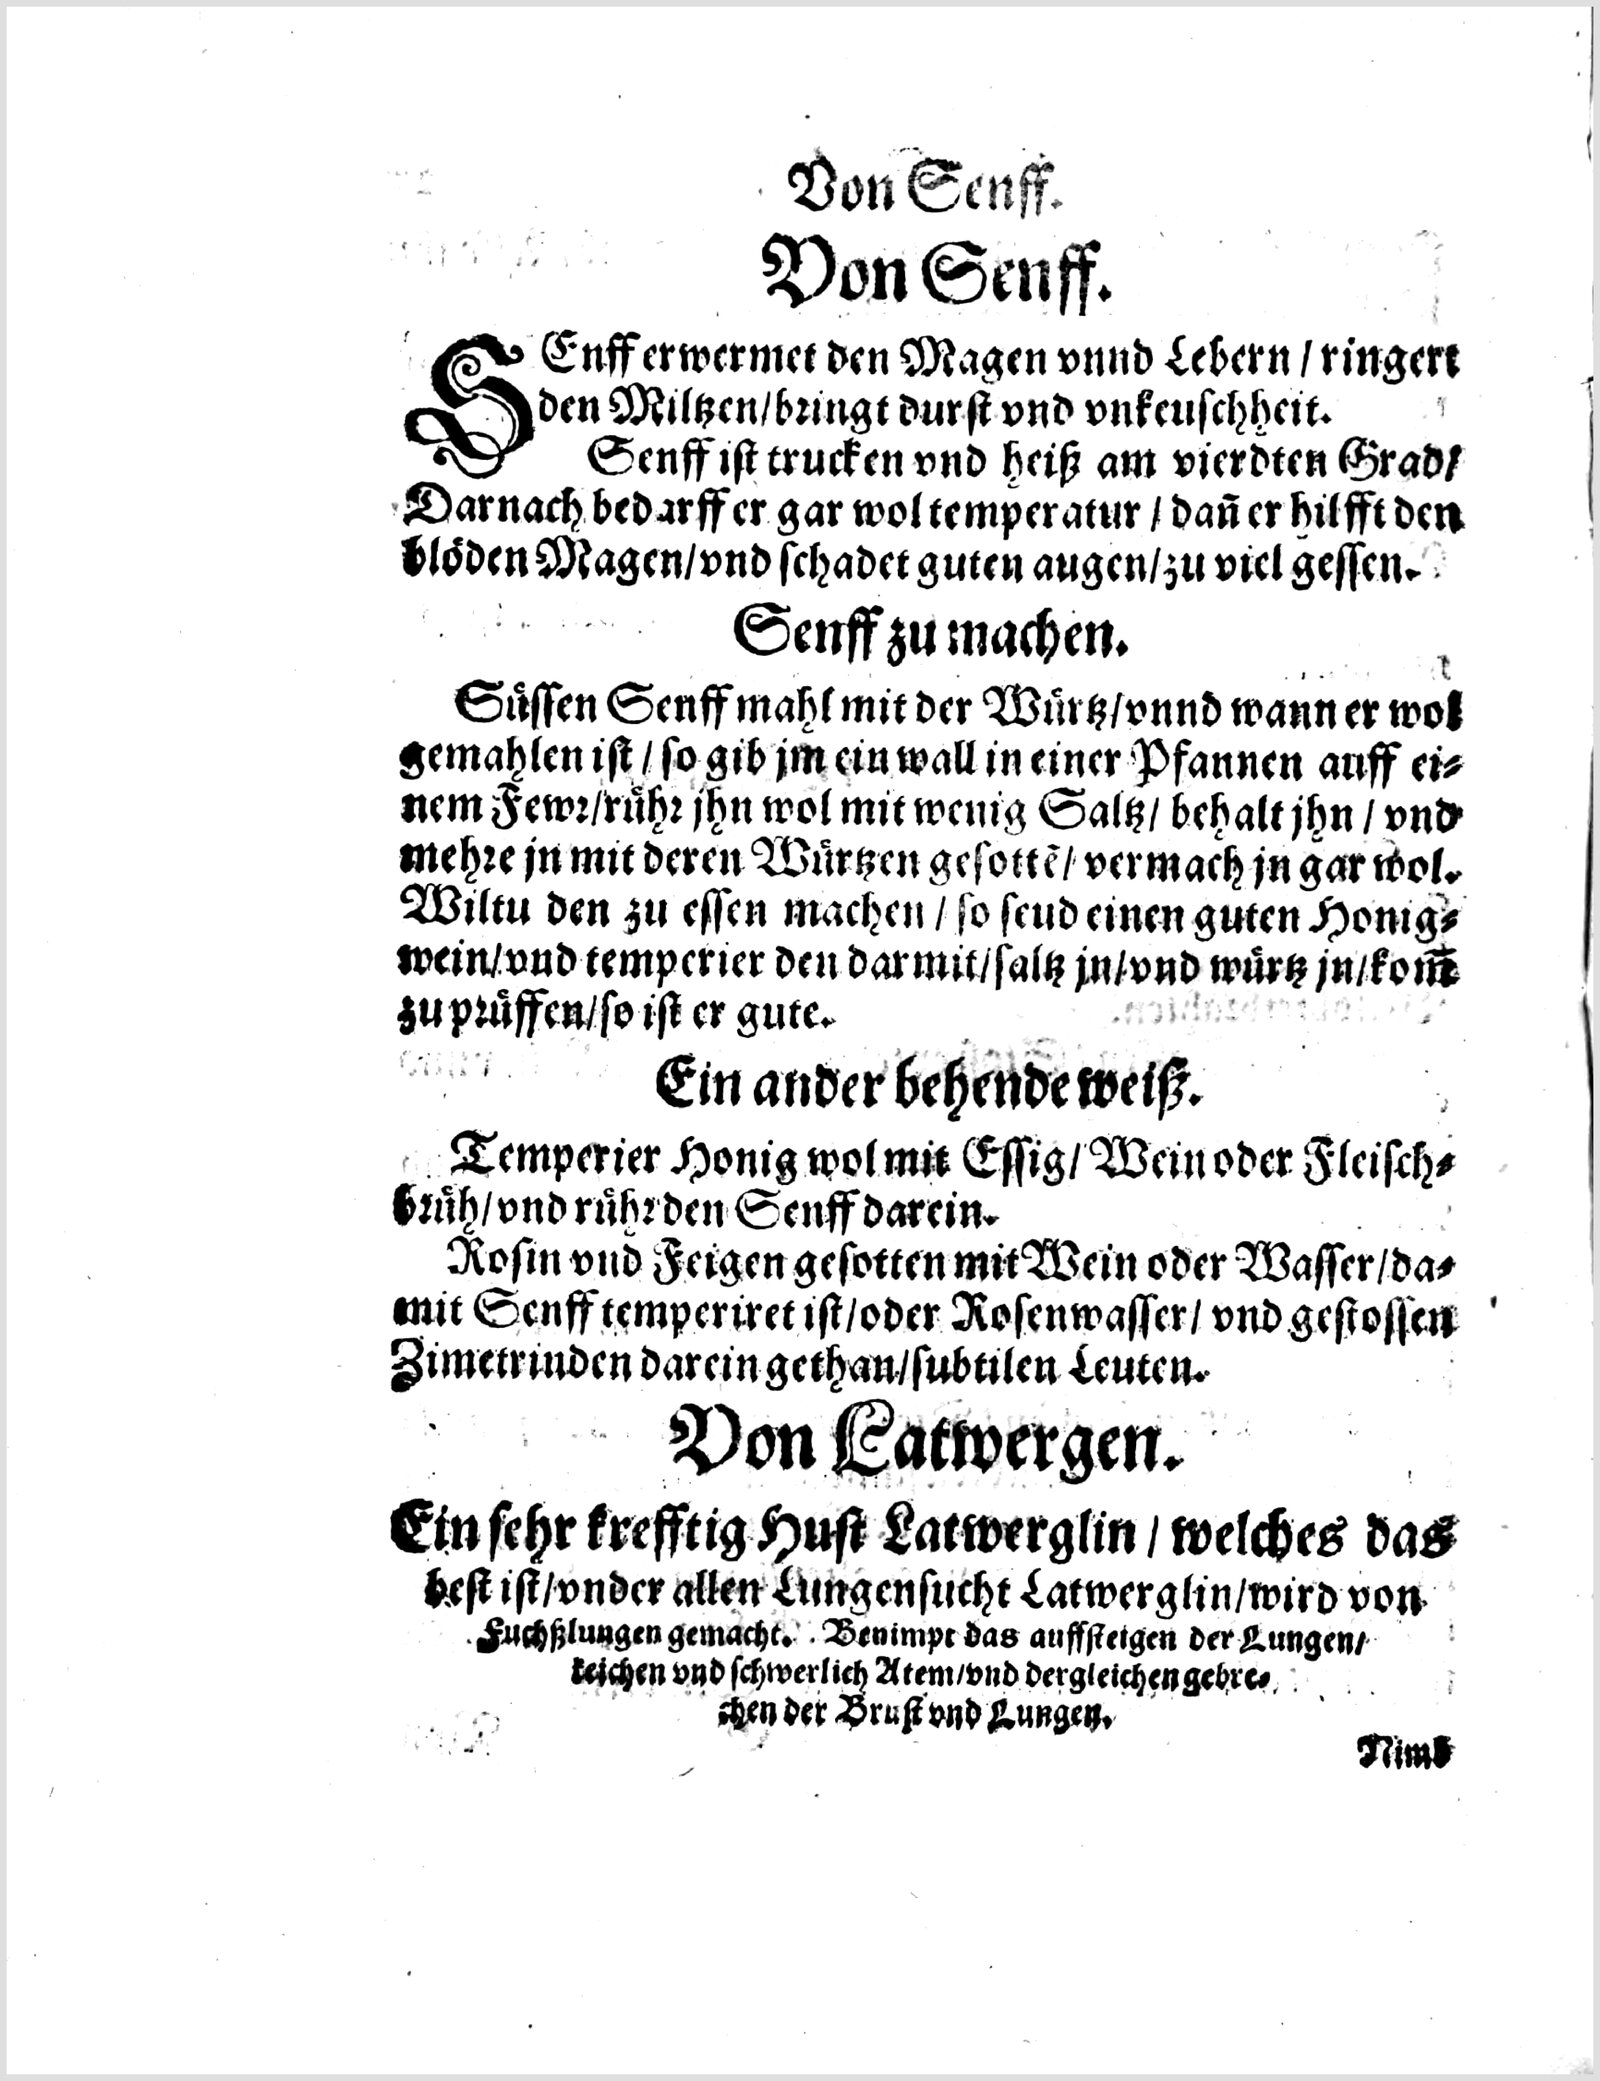 Von Senff.
Von Senff.
SEnff erwermet den Magen vnnd Lebern / ringert
den Miltzen/bringt durst vnd vnkeuschheit.
Senff ist trucken vnd heiß am vierdten Grad/
Darnach bedarff er gar wol temperatur / dañ er hilfft den
blöden Magen/vnd schadet guten augen/zu viel gessen.
Senff zu machen.
Süssen Senff mahl mit der Würtz/vnnd wann er wol
gemahlen ist / so gib jm ein wall in einer Pfannen auff ei-
nem Fewr/rühr jhn wol mit wenig Saltz/ behalt jhn / vnd
mehre jn mit deren Würtzen gesottē/ vermach jn gar wol.
Wiltu den zu essen machen / so seud einen guten Honig-
wein/vnd temperier den darmit/saltz jn/vnd würtz jn/kom̃
zu prüffen/so ist er gute.
Ein ander behende weiß.
Temperier Honig wol mit Essig/ Wein oder Fleisch-
brüh/vnd rühr den Senff darein.
Rosin vnd Feigen gesotten mit Wein oder Wasser/da-
mit Senff temperiret ist/oder Rosenwasser/ vnd gestossen
Zimetrinden darein gethan/subtilen Leuten.
Von Latwergen.
Ein sehr krefftig Hust Latwerglin / welches das
best ist/vnder allen Lungensucht Latwerglin/wird von
Fuchßlungen gemacht. Benimpt das auffsteigen der Lungen/
keichen vnd schwerlich Atem/vnd dergleichen gebre-
chen der Brust vnd Lungen.
Nimb